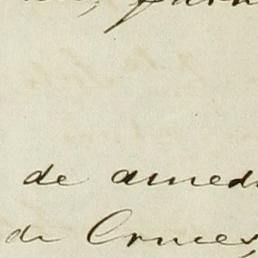 de amed
de Cruces,